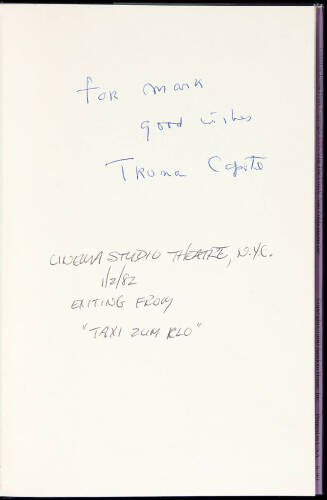 for Mark
good wishes
Truman Capote
CINEMA STUDIO THEATRE, N.Y.C.
1/2/82
EXITING FROM
"TAXI ZUM KLO"